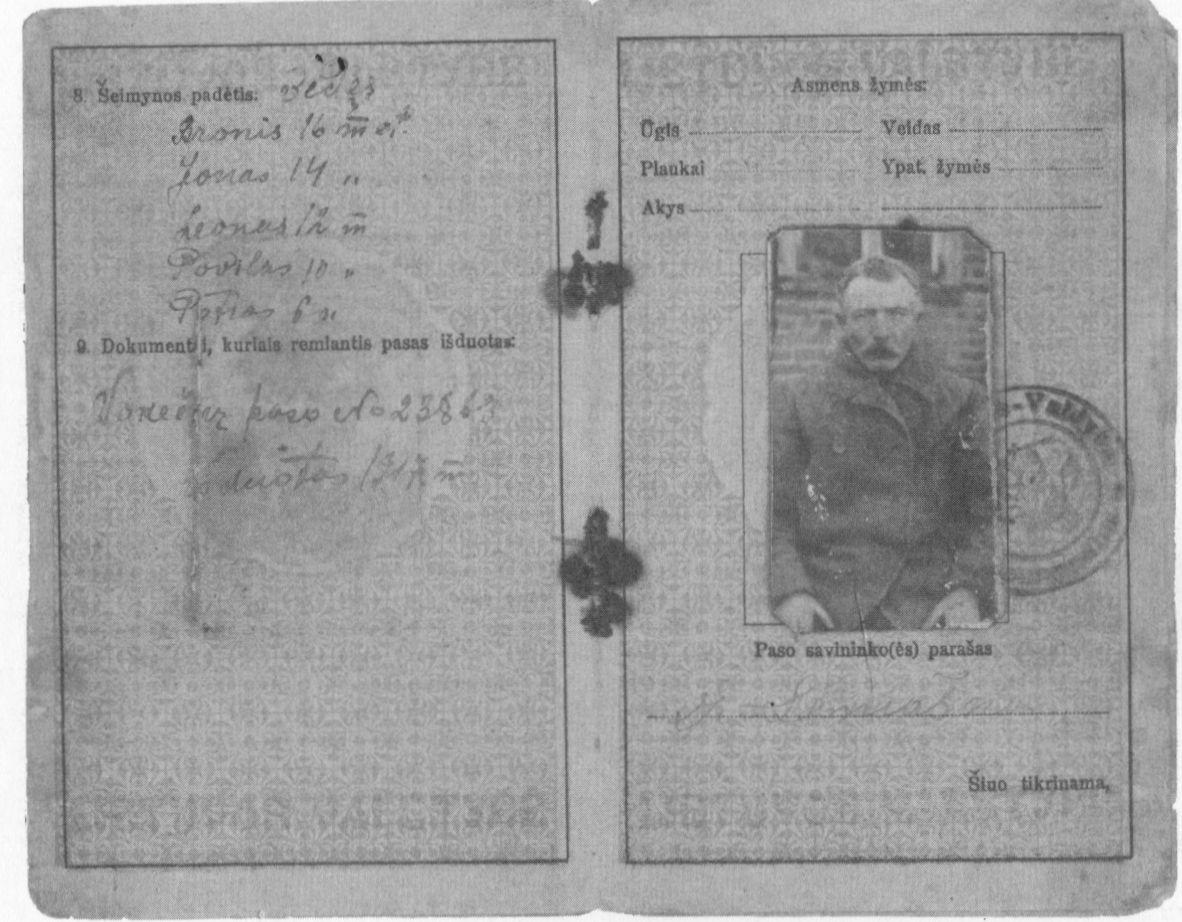 8. Šeimynos padėtis: vedęs
Bronis 16 m
Jonas 14 "
Leonas 12 m
Povilas 10 "
6
9. Dokumentai, kuriais remiantis pasas išduotas:
paso No 23863
išduotas 1917 m
Asmens žymės:
Ūgis
Veidas
Plaukai
Ypat. žymės
Akys
Paso savininko(ės) parašas
Šiuo tikrinama,